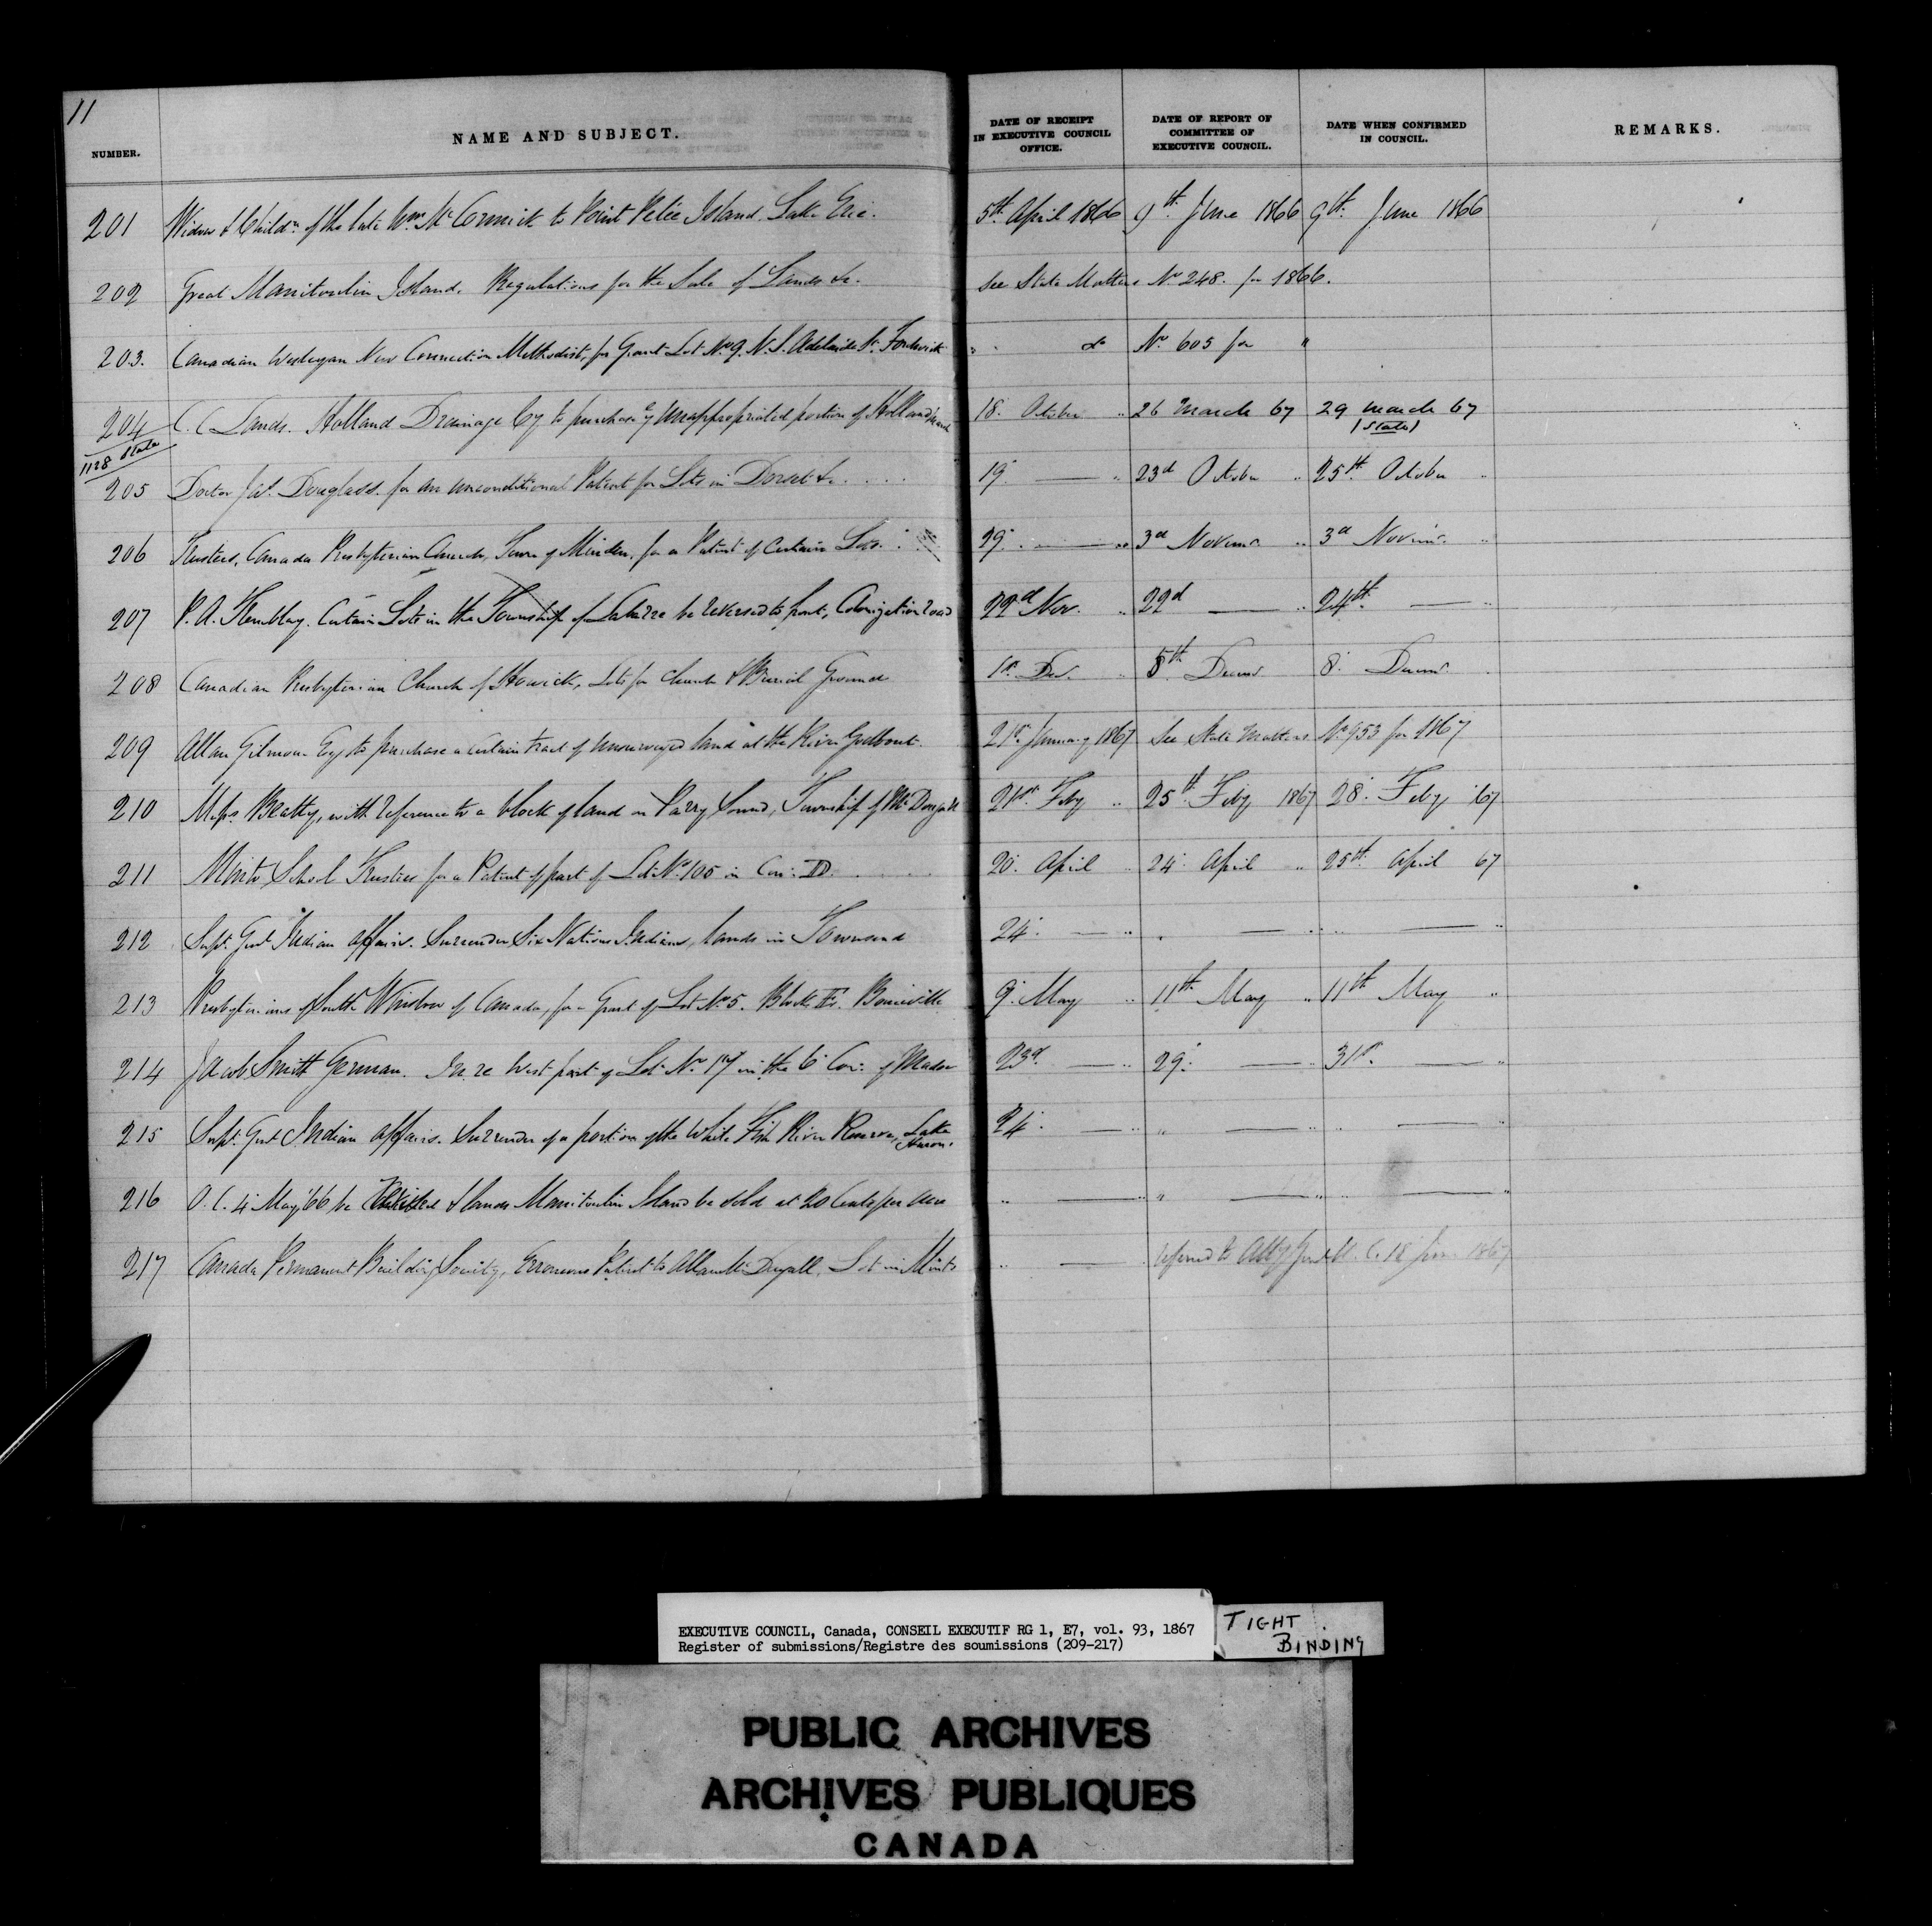 11
NUMBER.
NAME AND SUBJECT.
DATE OF RECEIPT IN EXECUTIVE COUNCIL OFFICE.
DATE OF REPORT OF COMMITTEE OF EXECUTIVE COUNCIL.
DATE WHEN CONFIRMED IN COUNCIL.
REMARKS.
201 Widow & Childn. of the late Wm. McCormick to Point Pelée Island, Lake Erie. 5th April 1866 9th June 1866 9th June 1866
202 Great Manitoulin Island. Regulations for the Sale of Lands &c. See State Matters No 248. for 1866.
203. Canadian Wesleyan New Connection Methodist, for Grant Lot No 9. N.S. Adelaide St. Fordwich " do No 605 for "
204 C. C Lands. Holland Drainage Cy to purchase ye unappropriated portion of Holland 18. October " 26 March 67 29 March 67
1128 State (State)
205 Doctor Jas. Douglass. for an unconditional Patent for Lots in Dorset &c. .... 19 — " 23d October " 25th October "
206 Trustees, Canada Presbyterian Church, Town of Minden, for a Patent of Certain Lots. 29. — " 3d Novemr " 3d Novemr. "
207 P. A. Tremblay. Certain Lots in the Township of be reversed to Colonization Road 22d Nov. " 22d — " 24th — "
208 Canadian Presbyterian Church of Howick, Lots for Church & Burial Ground 1st Dec. " 8th Decemr. 8. Decemr.
209 Allan Gilmour Esq to purchase a Certain tract of unsurveyed land at the River Godbout. 21st January 1867 See State Matters No 953 for 1867
210 Messrs. Beatty, with reference to a block of land on Parry Sound, Township of McDougall 21st Feby " 25th Feby 1867 28. Feby 67
211 Minto School Trustees for a Patent of part of Lot No. 105 in Con. D. .... 20. April " 24. April " 25th April 67
212 Supt. Genl Indian Affairs. Surrender Six Nations Indians, lands in Townsend 24. — " " — " " — "
213 Presbyterians of South Winslow of Canada, for a Grant of Lot No. 5. Block 9. May " 11th May " 11th May "
214 Jacob Smith German. In re West part of Lot No 17 in the 6 Con. of Madoc 23d. — " 29. — " 31st. — "
215 Supt. Genl Indian Affairs. Surrender of a portion of the White Fish River Reserve, Lake Huron. 24. — " " — " " — "
216 O. C. 4 May '66 be & lands Manitoulin Island be sold at 20 Cents per Acre " — " " — " " — "
217 Canada Permanent Building Society, Erroneous Patent to Allan McDugall, Lot in Minto " — Referred to Atty Genl U. C. 18 June 1867
EXECUTIVE COUNCIL, Canada, CONSEIL EXECUTIF RG 1, E7, vol. 93, 1867
Register of submissions/Registre des soumissions (209-217)
TIGHT
BINDING
PUBLIC ARCHIVES
ARCHIVES PUBLIQUES
CANADA